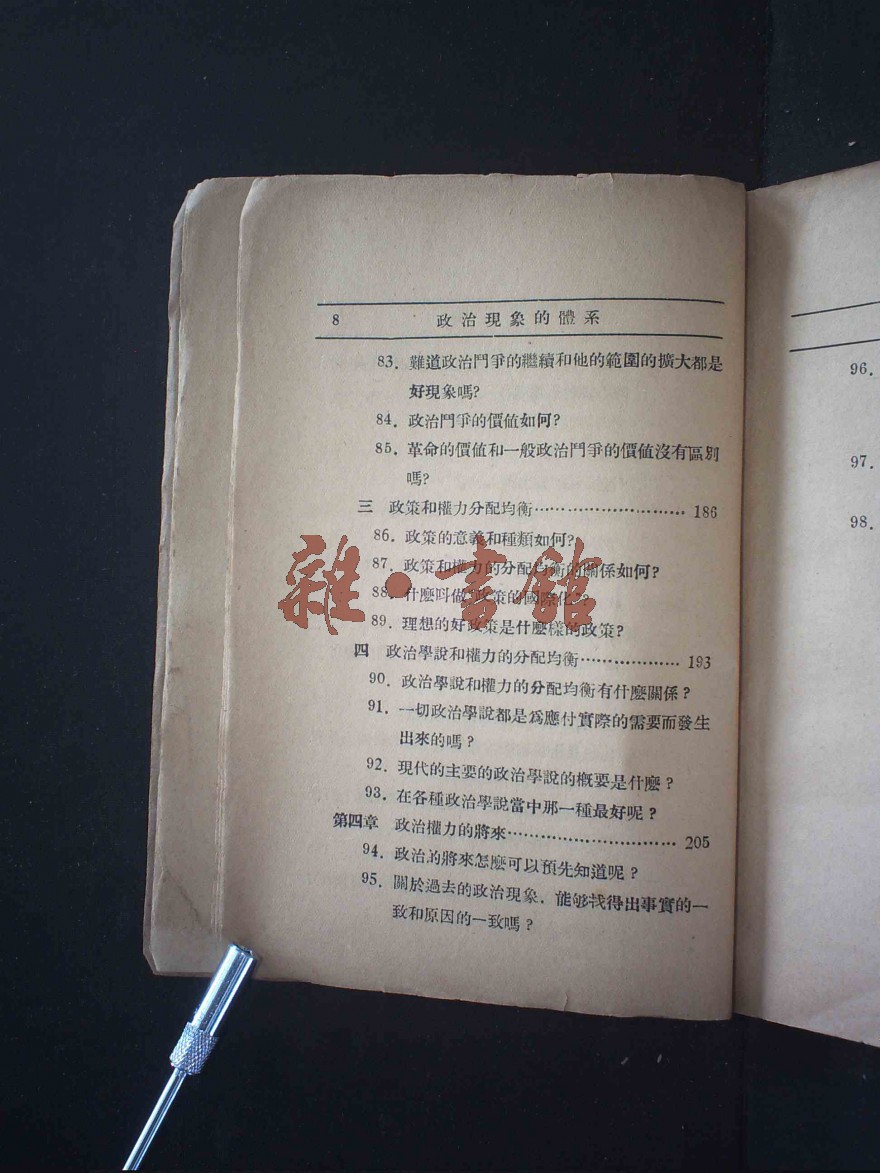 8 政治現象的體系
83. 難道政治鬥爭的繼續和他的範圍的擴大都是
好現象嗎?
84. 政治鬥爭的價値如何?
85. 革命的價値和一般政治鬥爭的價値沒有區別
嗎?
三 政策和權力分配均衡…………………… 186
86. 政策的意義和種類如何?
87. 政策和權力的分配均衡的關係如何?
88. 什麽呌做政策的國際化?
89. 理想的好政策是什麽樣的政策?
四 政治學說和權力的分配均衡……………… 193
90. 政治學說和權力的分配均衡有什麽關係?
91. 一切政治學說都是爲應付實際的需要而發生
出來的嗎?
92. 現代的主要的政治學說的槪要是什麽?
93. 在各種政治學說當中那一種最好呢?
第四章 政治權力的將來………………………… 205
94. 政治的將來怎麽可以預先知道呢?
95. 關於過去的政治現象，能够找得出事實的一
致和原因的一致嗎?
96.
97.
98.
雜·書館